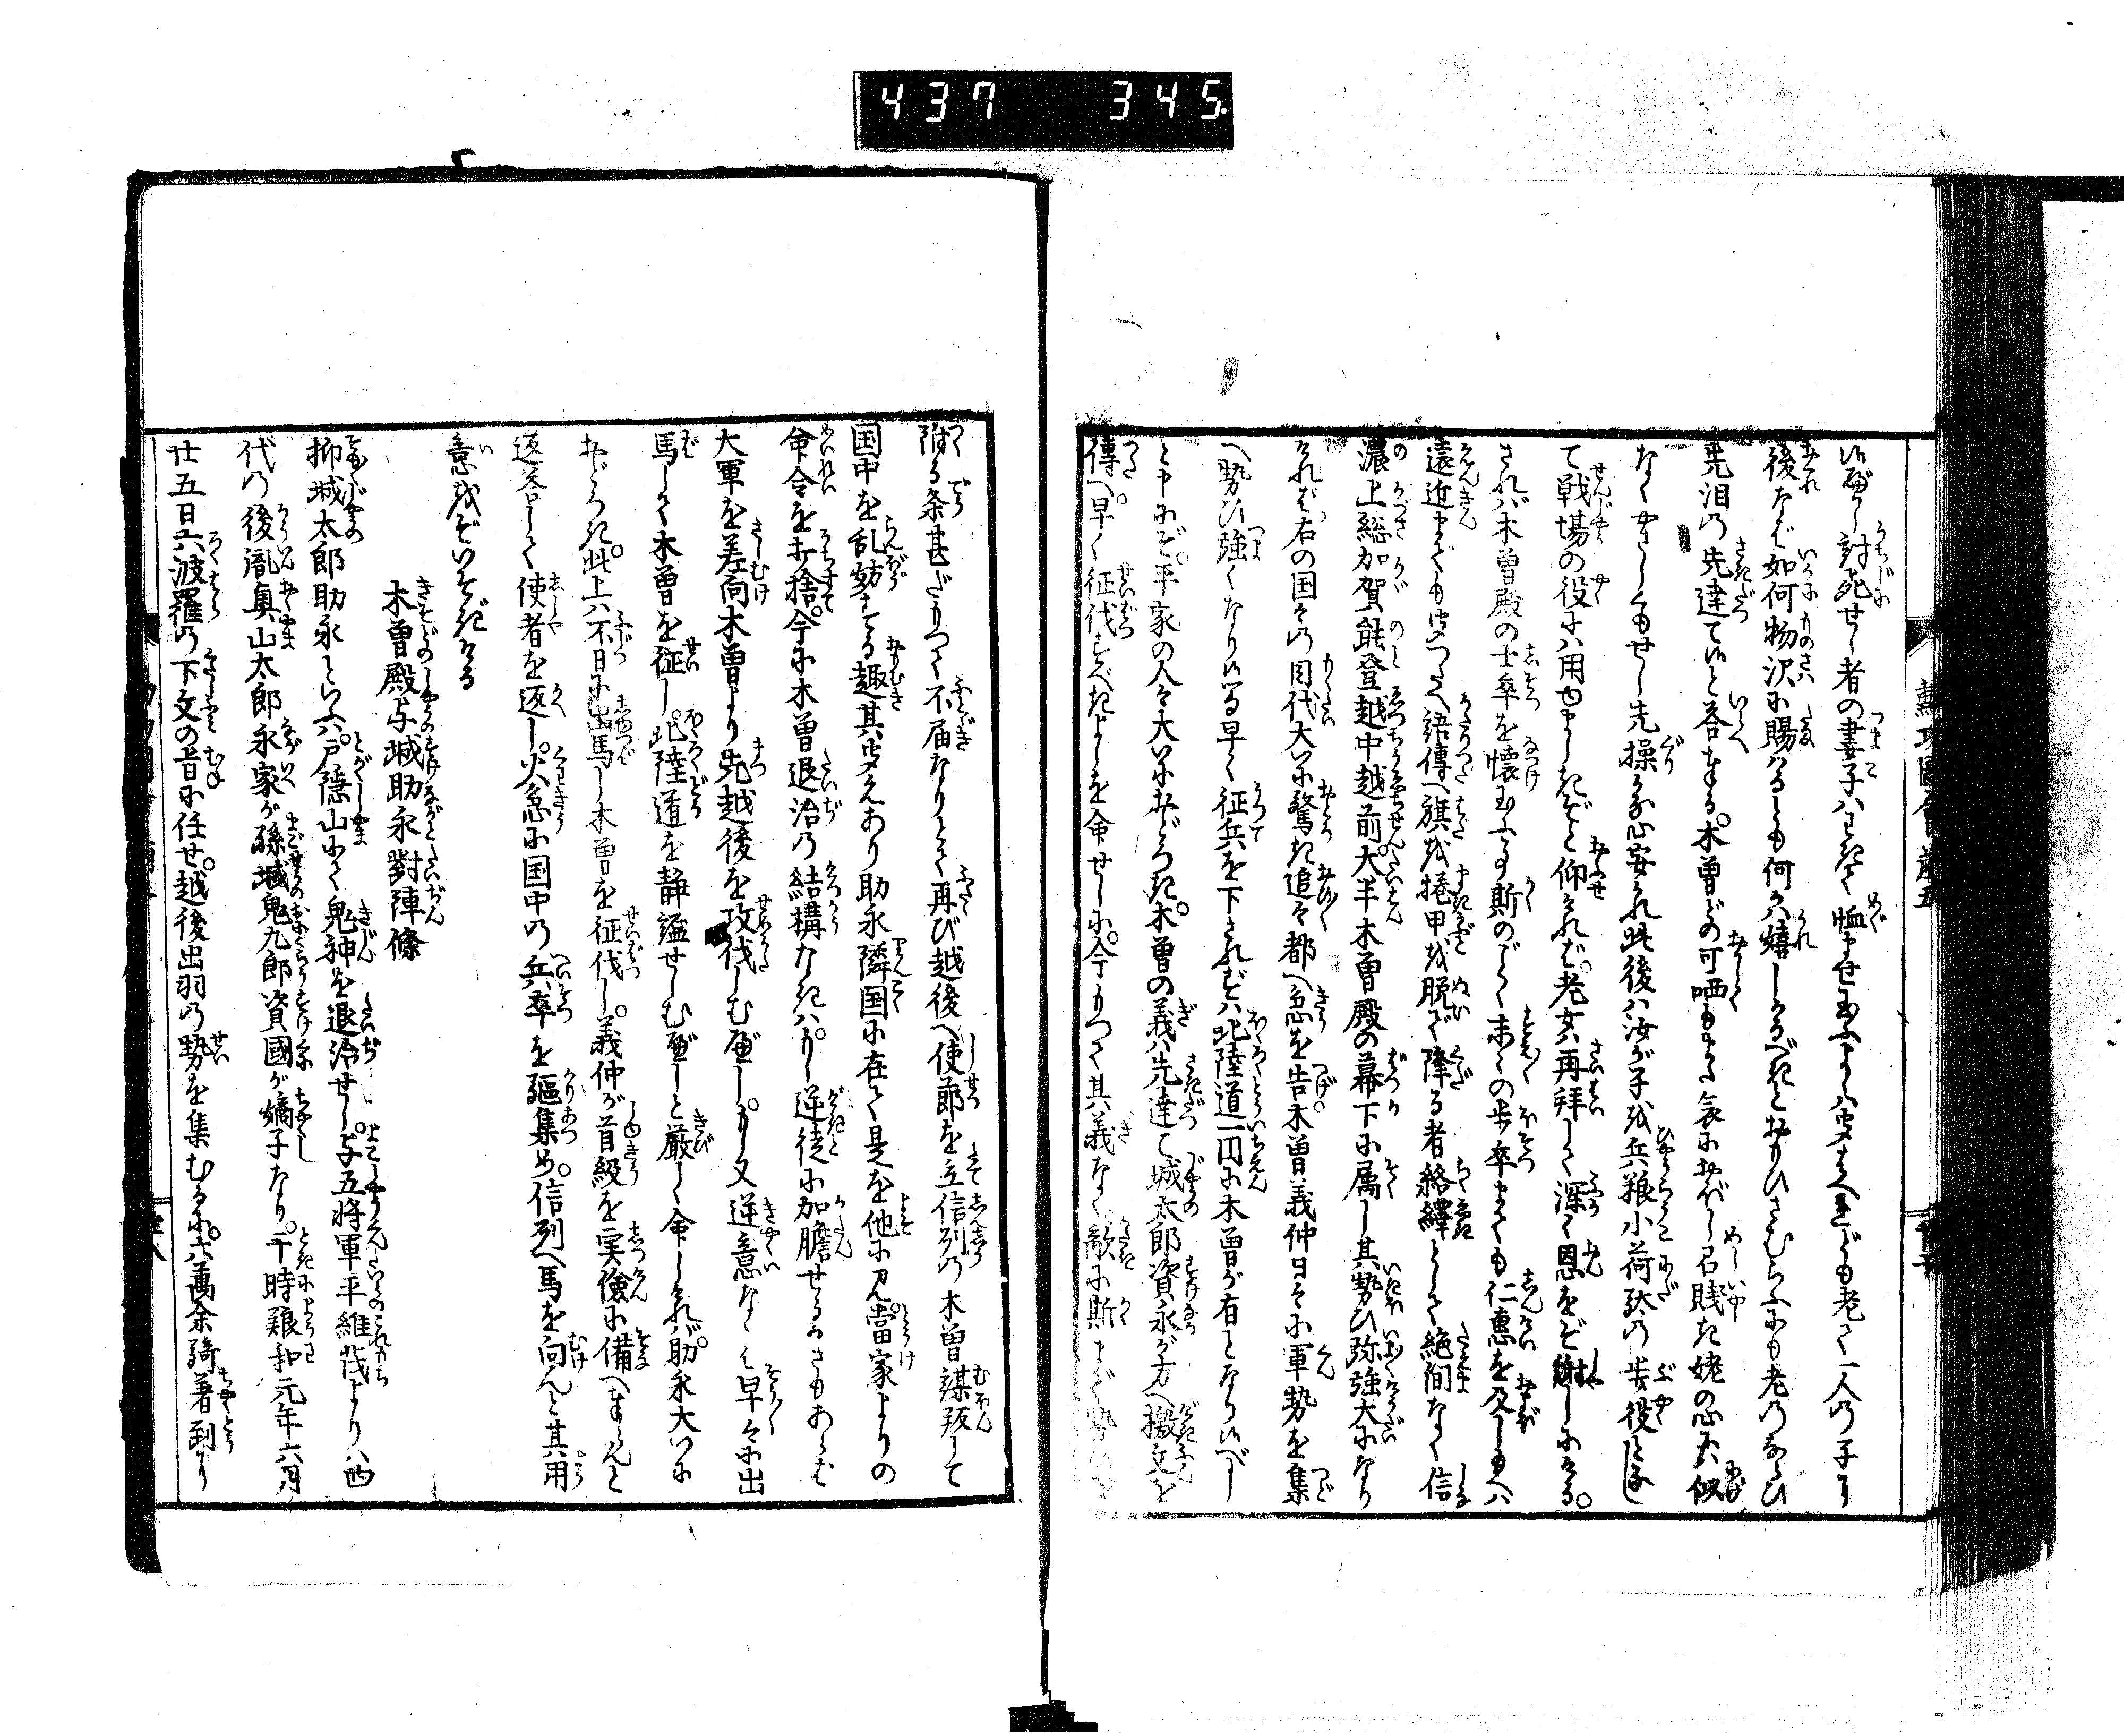 437 345.
ゆゑ討死せし者の妻子ハわきて恤ませ玉ふよしハ聞まへ侍れども老て一人の子に
後なば如何物沢に賜ハるとも何か嬉しかるべきとおもひさむらふにも老のならひ
先泪の先達てゆと答ける。木曽どの可哂もまた哀におぼし召賤き姥の心に似
なくやさしくもせし先操かな心安かれ此後ハ汝が子を兵粮小荷駄の歩役となし
て戦場の役にハ用ゆまじきぞと仰ければ。老女再拝して深く恩をぞ謝しにける。
されバ木曽殿の士卒を懐玉ふ事斯のごとく末々の歩卒までも仁恵を及し玉へハ
遠近までも聞つたへ語傳へ旗を捲甲を脱で降る者絡繹として絶間なく信
濃上総加賀能登越中越前。大半木曽殿の幕下に属し其勢ひ弥強大になり
ければ。右の国々の目代大いに驚き追々都へ急を告。木曽義仲日々に軍勢を集
へ勢ひ強くなりゆる早く征兵を下されずハ北陸道一円に木曽が有となりゆべし
と申にぞ。平家の人々大いにおどろき。木曽の義ハ先達て城太郎資永が方へ檄文を
傳へ。早く征伐すべきよしを命せしに。今もつて其義なく。敵に斯まで勢ひを
附る条甚だもつて不届なりとて再び越後へ使節を立信列の木曽謀叛して
国中を乱妨する趣其聞えあり助永隣国に在て是を他に見。當家よりの
命令を打捨。今に木曽退治の結構なきハ。もし逆徒に加膽せるかさもあらば
大軍を差向木曽より先越後を攻伐しむべし。もし又逆意なくハ早々に出
馬して木曽を征し。北陸道を静謐せしむべしと厳しく命しければ。助永大いに
おどろき。此上ハ不日に出馬し木曽を征伐し。義仲が首級を実儉に備へまゐらんと
返答して使者を返し。火急に国中の兵卒を駈集め。信列へ馬を向んと其用
意をぞいそぎける
木曽殿与城助永對陣條
抑城太郎助永といふハ。戸隠山にて鬼神を退治せし。与五将軍平維茂より八四
代の後胤奥山太郎永家が孫城鬼九郎資國が嫡子なり。于時養和元年六月
廿五日六波羅の下文の旨に任せ。越後出羽の勢を集むるに。六萬余騎着到あり